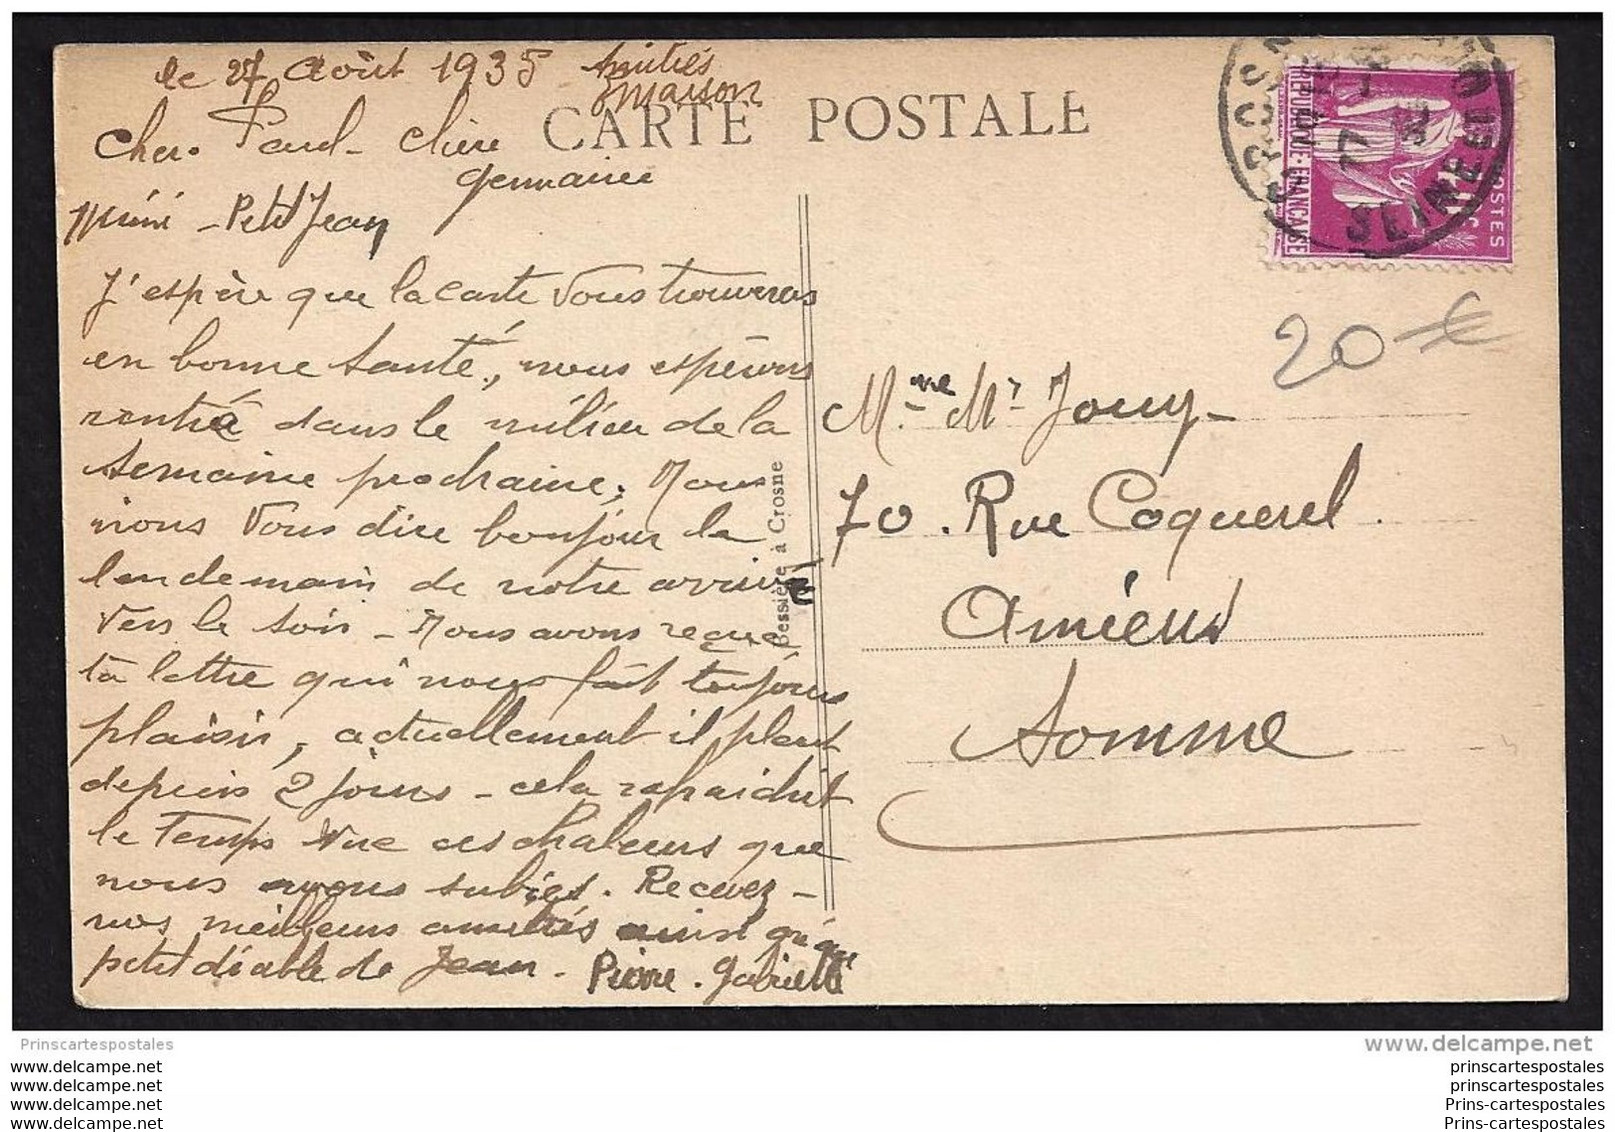 le 27 Août 1935 Amitiés
maison
CARTE POSTALE
Cher. Paul - Chère
Germaine
Mimi - Petit Jean
J'espère que la carte vous trouveras
en bonne santé, nous espérons
rentré dans le milieu de la
semaine prochaine, Nous
irons vous dire bonjour le
lendemain de notre arrivé
vers le soir - Nous avons reçue
ta lettre qui nous fait toujours
plaisir, actuellement il pleut
depuis 2 jours - cela rafraichit
le temps vue ces chaleurs que
nous avons subies. Recevez -
nos meilleurs amitiés ainsi qu'à
petit diable de Jean - Pierre. Gabrielle
Bessière à Crosne
CROSNE
17
27
35
SEINE ET OISE
REPUBLIQUE FRANÇAISE
POSTES
20 €
Mme Mr Jouy -
70. Rue Coquerel.
Amiens
Somme
Prinscartespostales
www.delcampe.net
www.delcampe.net
www.delcampe.net
www.delcampe.net
www.delcampe.net
prinscartespostales
prinscartespostales
Prins-cartespostales
Prins-cartespostales